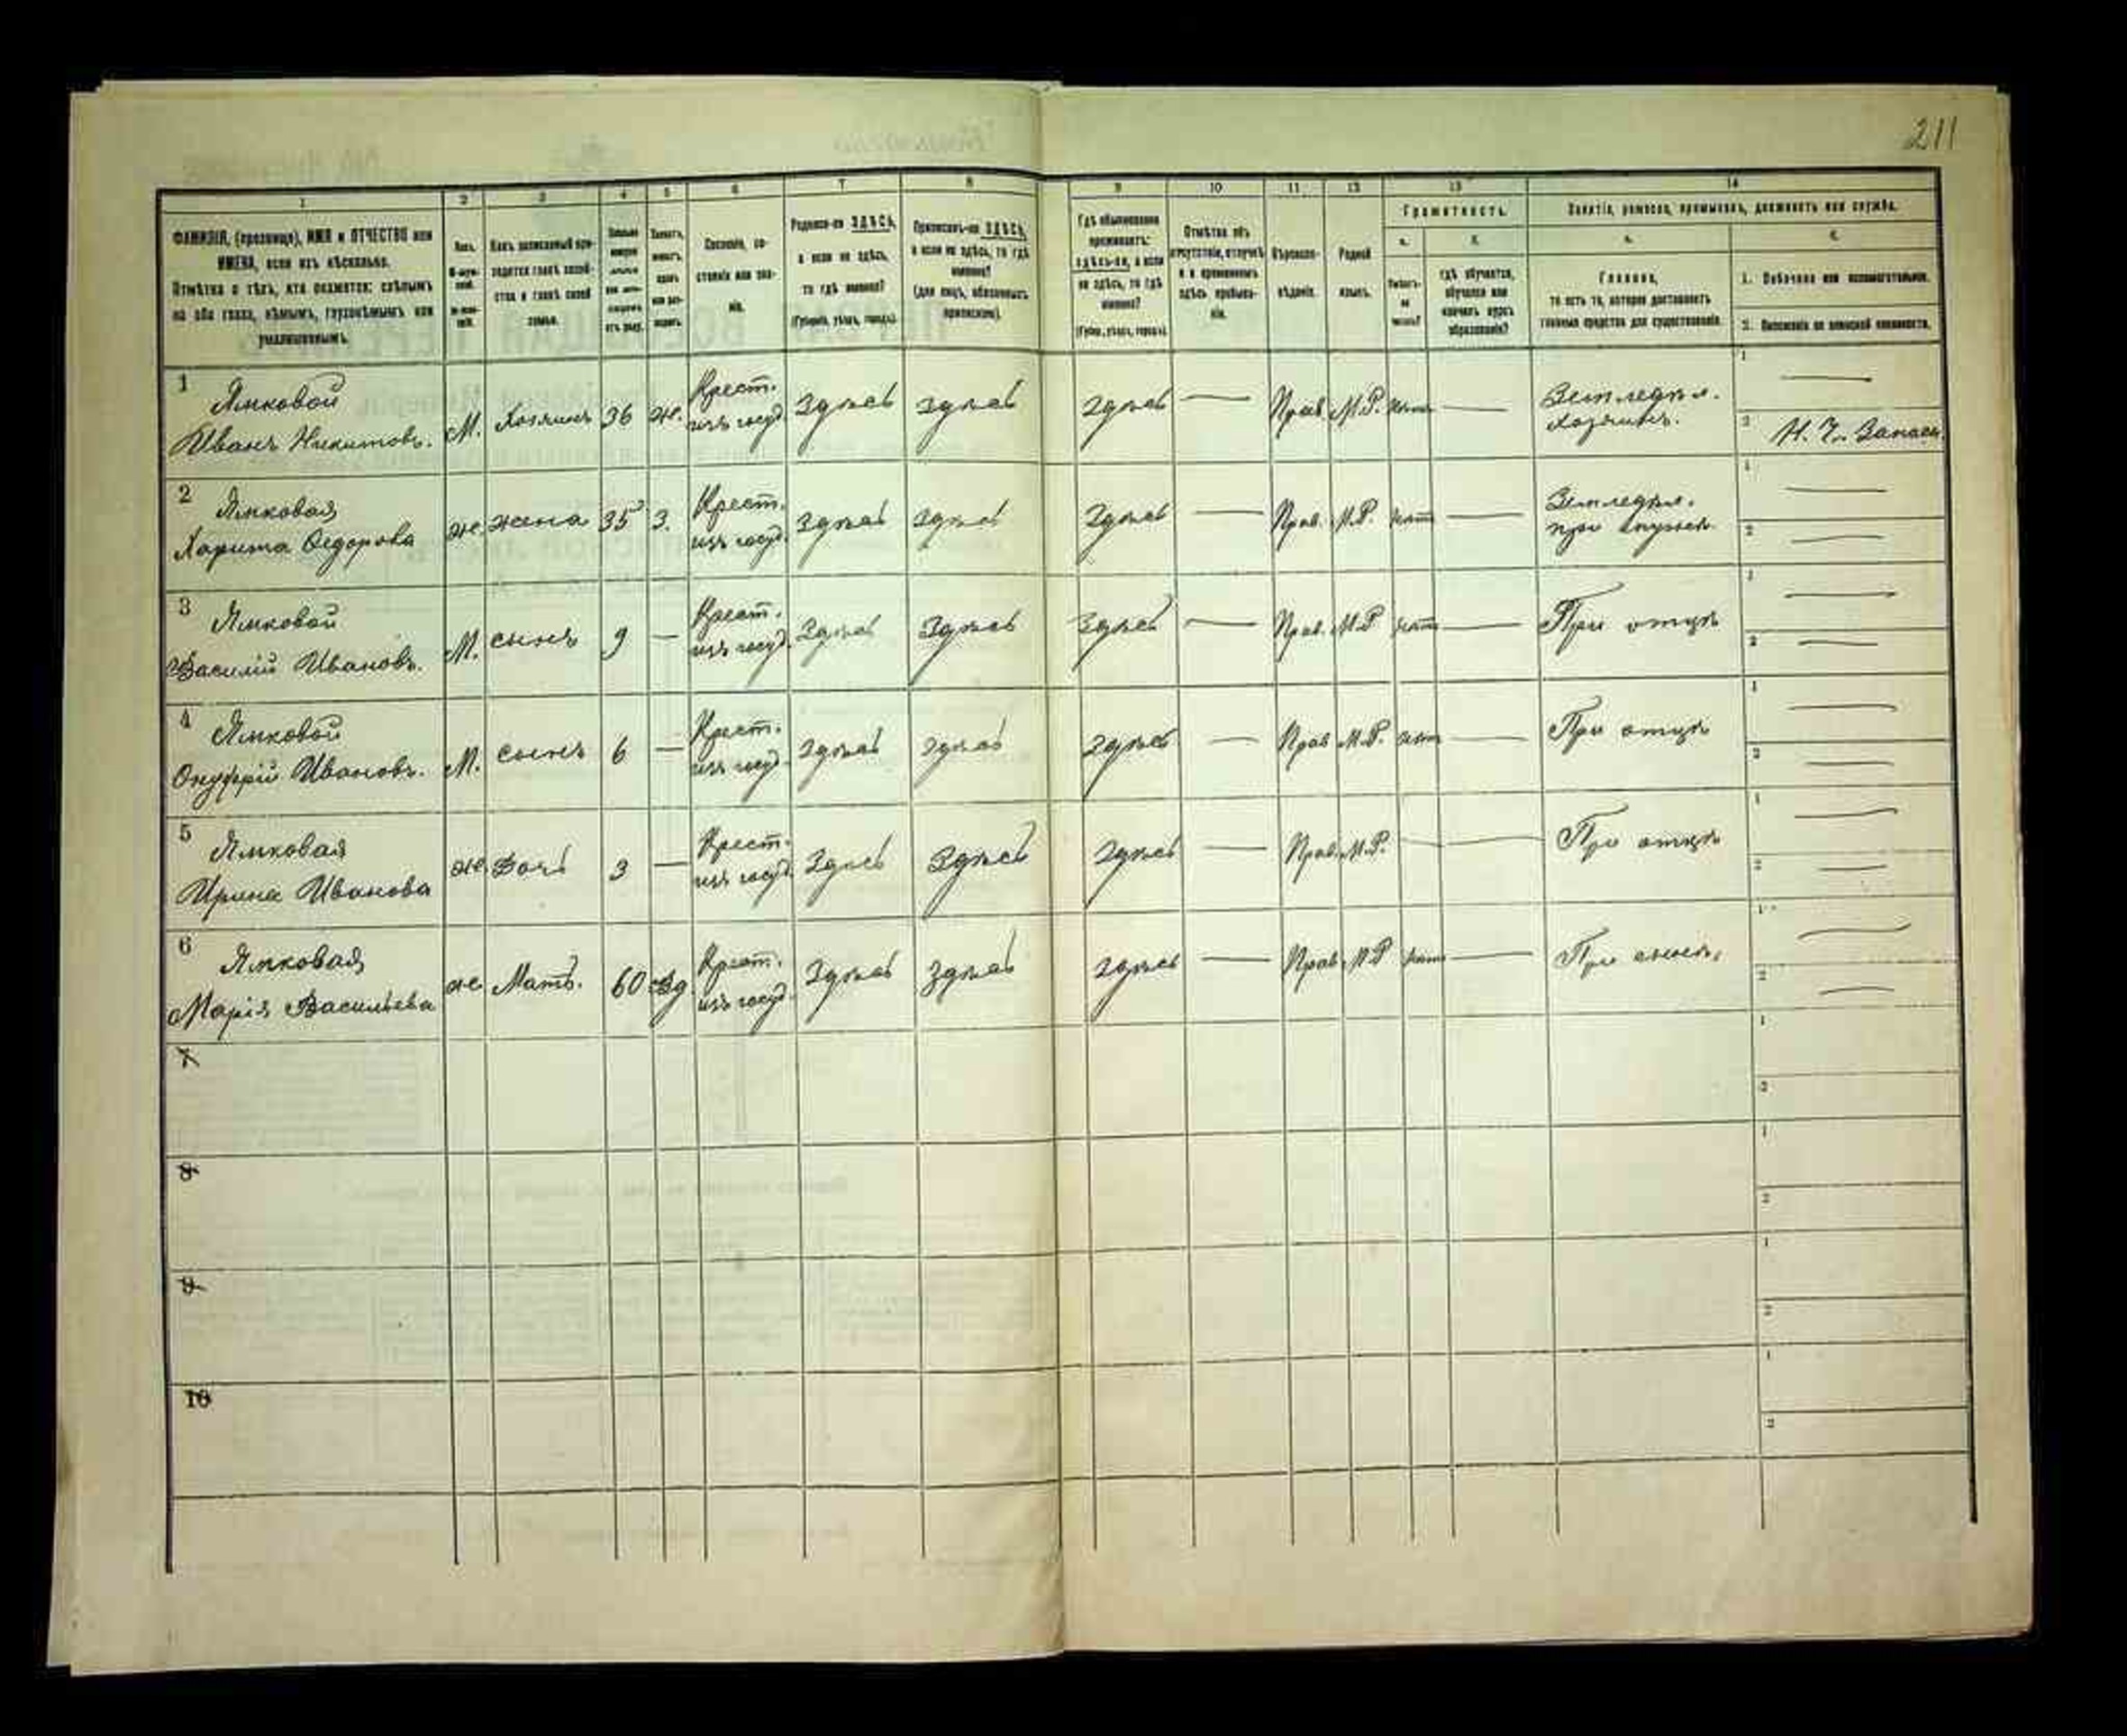 211
1 2 3 4 5 6 7 8 9 10 11 12 13 14
ФАМИЛІЯ, (прозвище), ИМЯ и ОТЧЕСТВО или
ИМЕНА, если ихъ нѣсколько.
Отмѣтка о тѣхъ, кто окажется: слѣпымъ
на оба глаза, нѣмымъ, глухонѣмымъ или
умалишеннымъ.
Полъ.
Какъ записанный при-
ходится главѣ хозяй-
ства и главѣ своей
семьи.
Сословіе, со-
стояніе или зва-
ніе.
Родился-ли ЗДѢСЬ,
а если не здѣсь,
то гдѣ именно?
(Губернія, уѣздъ, городъ).
Приписанъ-ли ЗДѢСЬ,
а если не здѣсь, то гдѣ
именно?
(для лицъ, обязанныхъ
припискою).
Гдѣ обыкновенно
проживаетъ:
здѣсь-ли, а если
не здѣсь, то гдѣ
именно?
(Губер., уѣздъ, городъ).
Отмѣтка объ
отсутствіи, отлучкѣ
и о временномъ
здѣсь пребыва-
ніи.
Вѣроиспо-
вѣданіе.
Родной
языкъ.
Грамотность.
а. б.
Умѣетъ-
ли
читать?
гдѣ обучается,
обучался или
кончилъ курсъ
образованія?
Занятіе, ремесло, промыселъ, должность или служба.
а. б.
Главное,
то есть то, которое доставляетъ
главныя средства для существованія.
1. Побочное или вспомогательное.
2. Положеніе по воинской повинности.
1 Ямковой
Иванъ Никитовъ. М. Хозяинъ 36 ж. Крест. изъ госуд. Здѣсь Здѣсь Здѣсь — Прав. М.Р. нѣтъ — Земледѣл. хозяинъ. 1 — 2 Н. Ч. Запаса
2 Ямковая
Харита Федорова ж. жена 35 З. Крест. изъ госуд. Здѣсь Здѣсь Здѣсь — Прав. М.Р. нѣтъ — Земледѣл. при 1 — 2 —
3 Ямковой
Василій Ивановъ. М. сынъ 9 — Крест. изъ госуд. Здѣсь Здѣсь Здѣсь — Прав. М.Р нѣтъ — При отцѣ 1 — 2 —
4 Ямковой
Онуфрій Ивановъ. М. сынъ 6 — Крест. изъ госуд. Здѣсь Здѣсь Здѣсь — Прав М.Р. нѣтъ — При отцѣ 1 — 2 —
5 Ямковая
Ирина Иванова ж. Дочь 3 — Крест. изъ госуд. Здѣсь Здѣсь Здѣсь — Прав. М.Р. — — При отцѣ 1 — 2 —
6 Ямковая
Марія Васильева ж Мать. 60 Вд. Крест. изъ госуд. Здѣсь Здѣсь Здѣсь — Прав М.Р нѣтъ — При сынѣ. 1 — 2 —
7 1 2
8 1 2
9 1 2
10 1 2